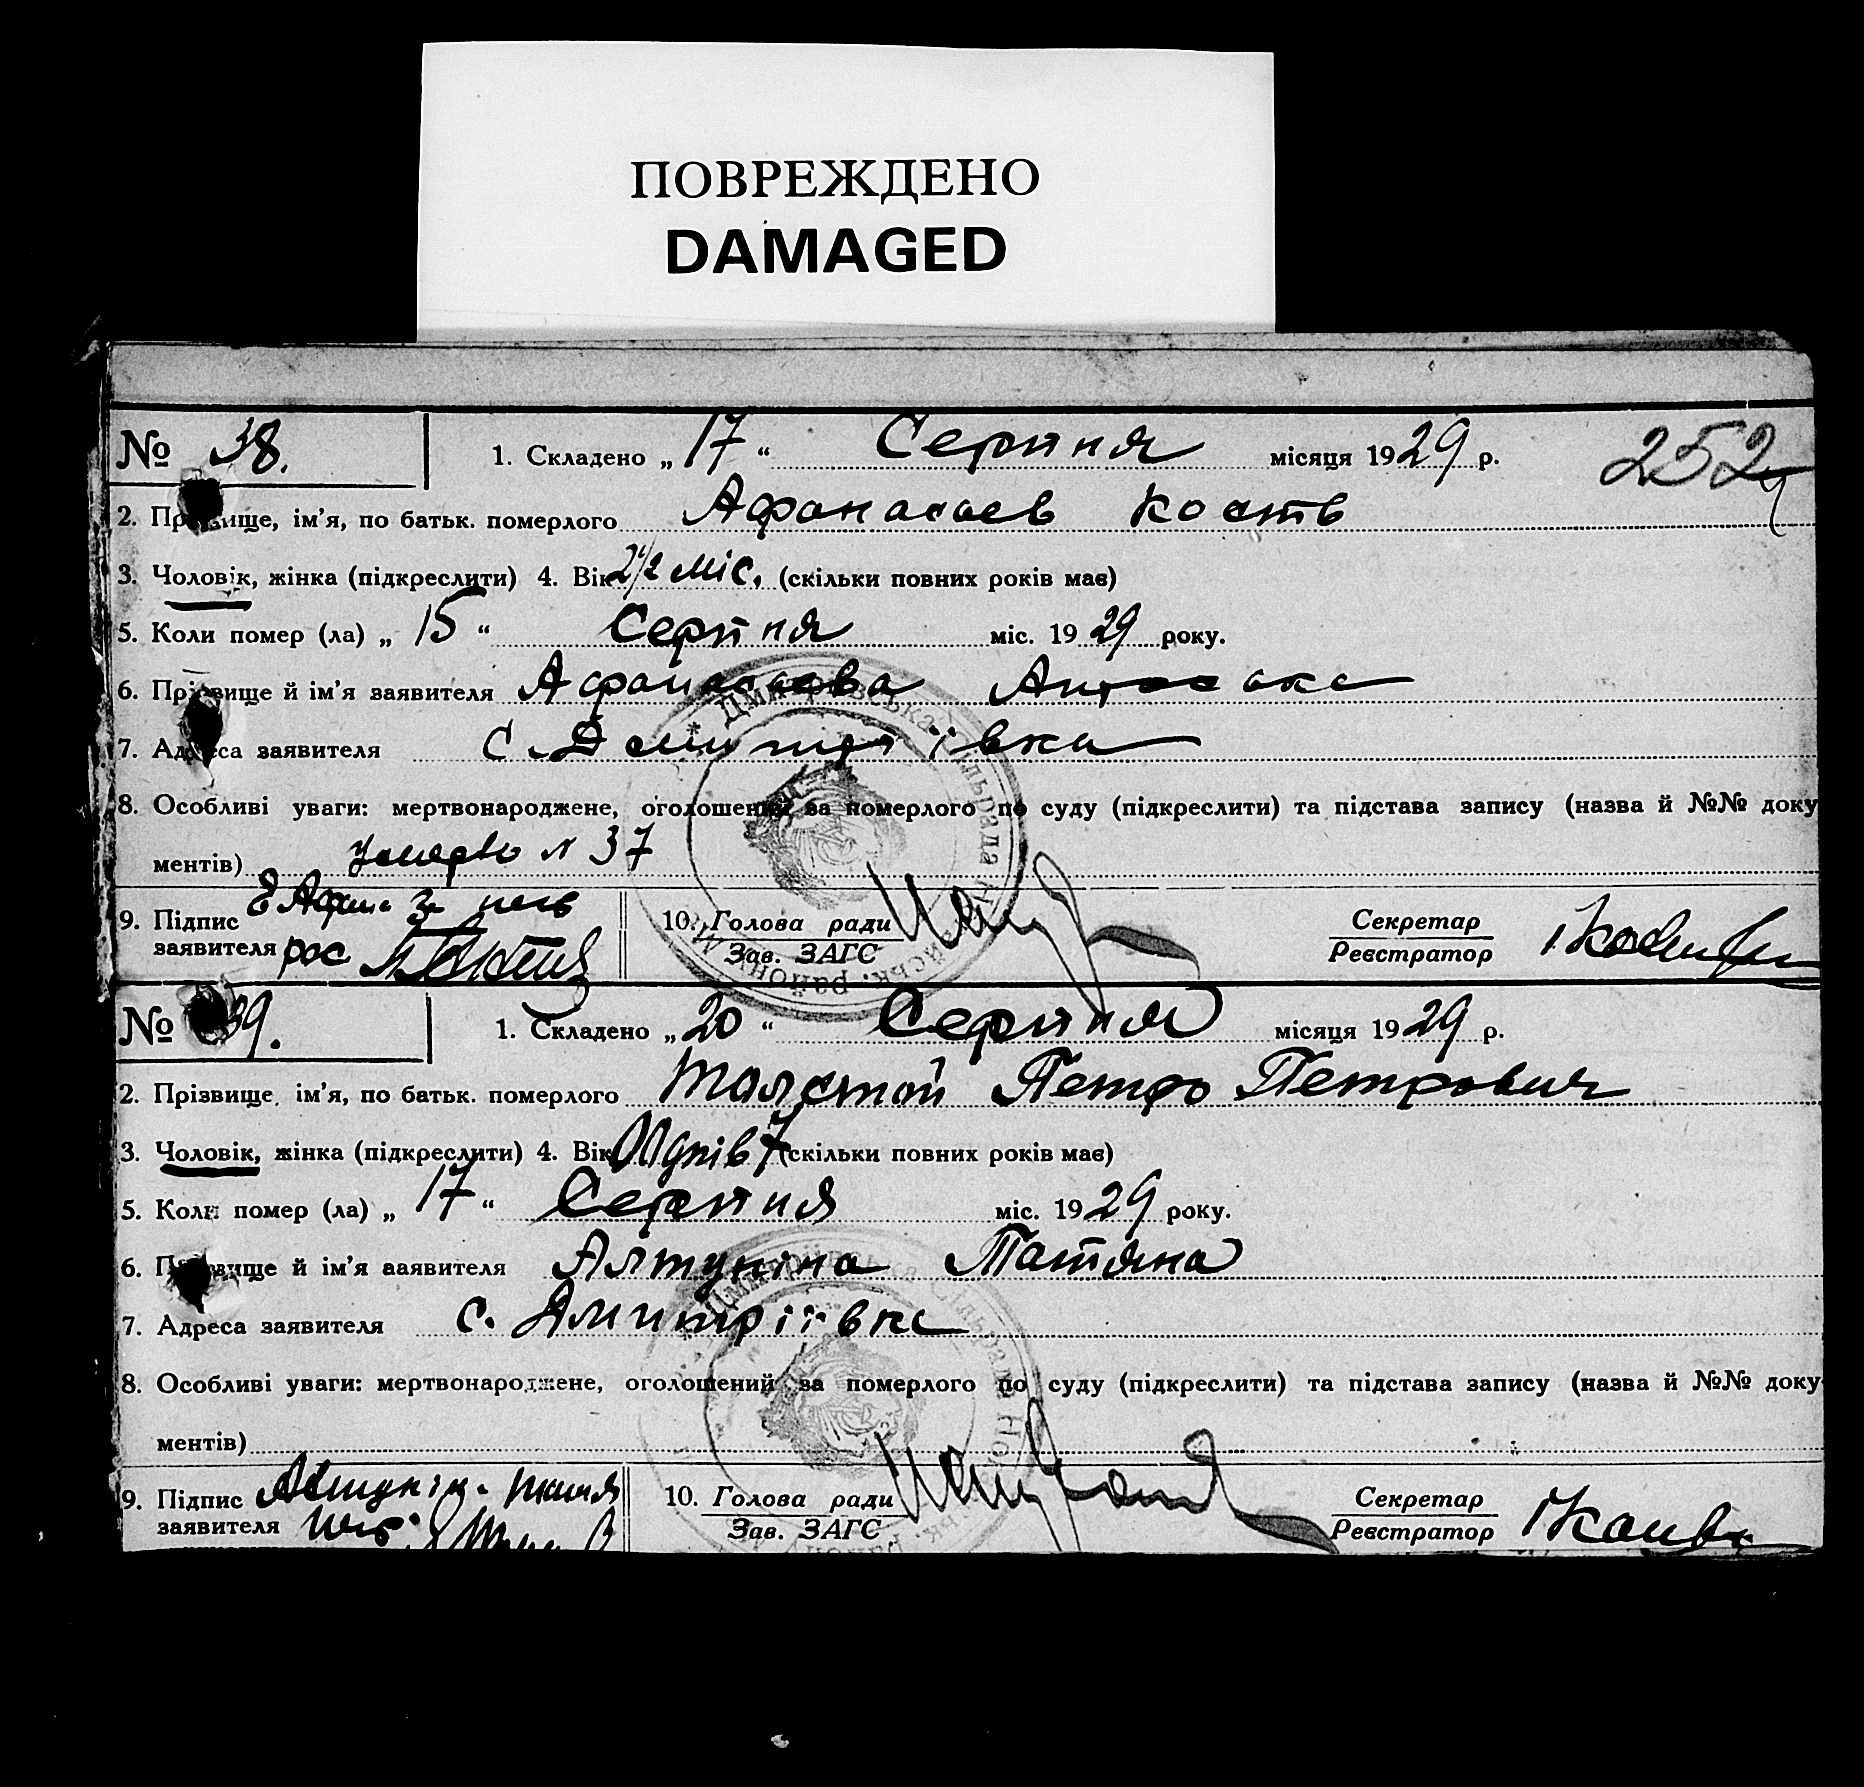 ПОВРЕЖДЕНО
DAMAGED
№ 38. 1. Складено „ 17 “ Серпня місяця 1929 р. 252
2. Прізвище, ім’я, по батьк. померлого Афанасаев Кость
3. Чоловік, жінка (підкреслити) 4. Вік 2 1/2 міс. (скільки повних років має)
5. Коли помер (ла) „ 15 “ Серпня міс. 1929 року.
6. Прізвище й ім’я заявителя Афанасаева
7. Адреса заявителя с.
8. Особливі уваги: мертвонароджене, оголошений за померлого по суду (підкреслити) та підстава запису (назва й №№ доку
ментів) № 37
9. Підпис за
заявителя рос
10. Голова ради
Зав. ЗАГС
Секретар
Реєстратор
№ 39. 1. Складено „ 20 “ Серпня місяця 1929 р.
2. Прізвище, ім’я, по батьк. померлого Толстой Петро Петрович
3. Чоловік, жінка (підкреслити) 4. Вік днів 7 (скільки повних років має)
5. Коли помер (ла) „ 17 “ Серпня міс. 1929 року.
6. Прізвище й ім’я заявителя Алтуніна Татяна
7. Адреса заявителя с. Дмитріївка
8. Особливі уваги: мертвонароджене, оголошений за померлого по суду (підкреслити) та підстава запису (назва й №№ доку
ментів)
9. Підпис
заявителя
10. Голова ради
Зав. ЗАГС
Секретар
Реєстратор